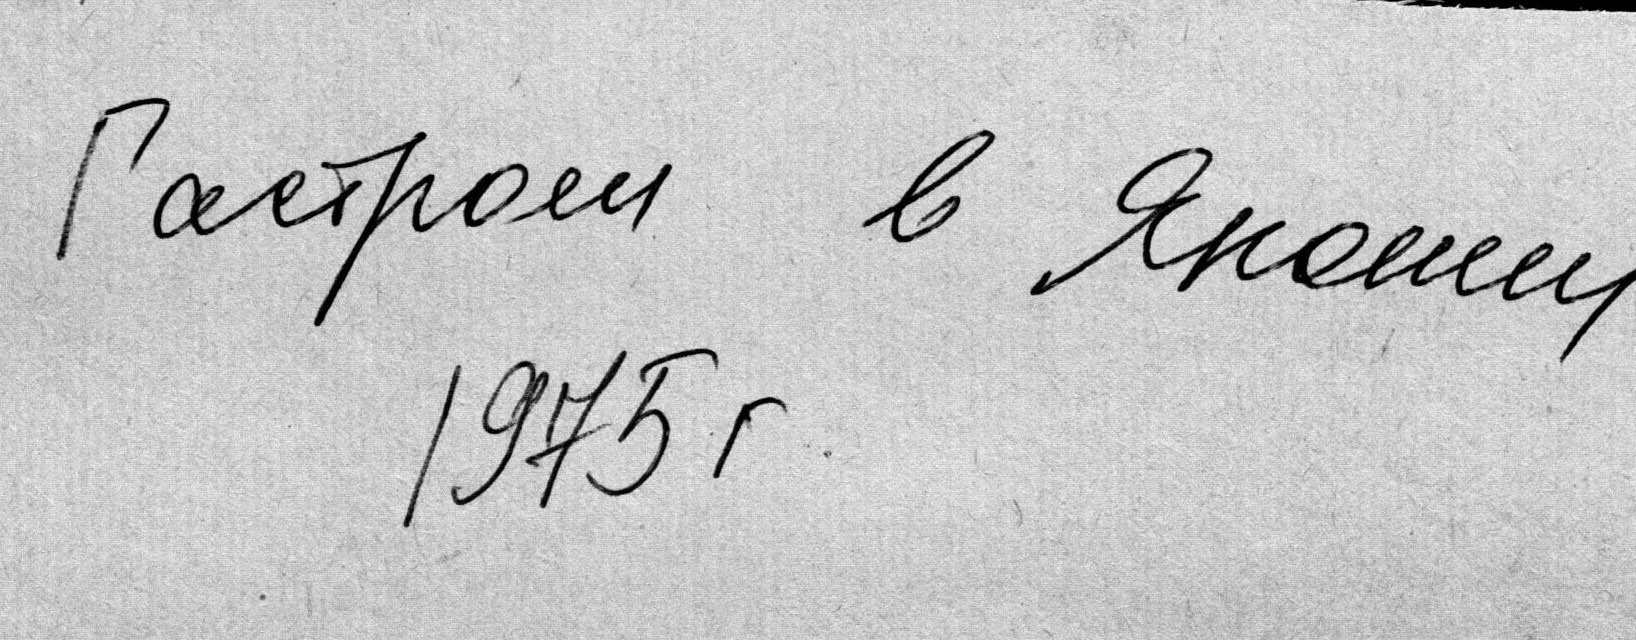 Гастроли в Японии
1975 г.